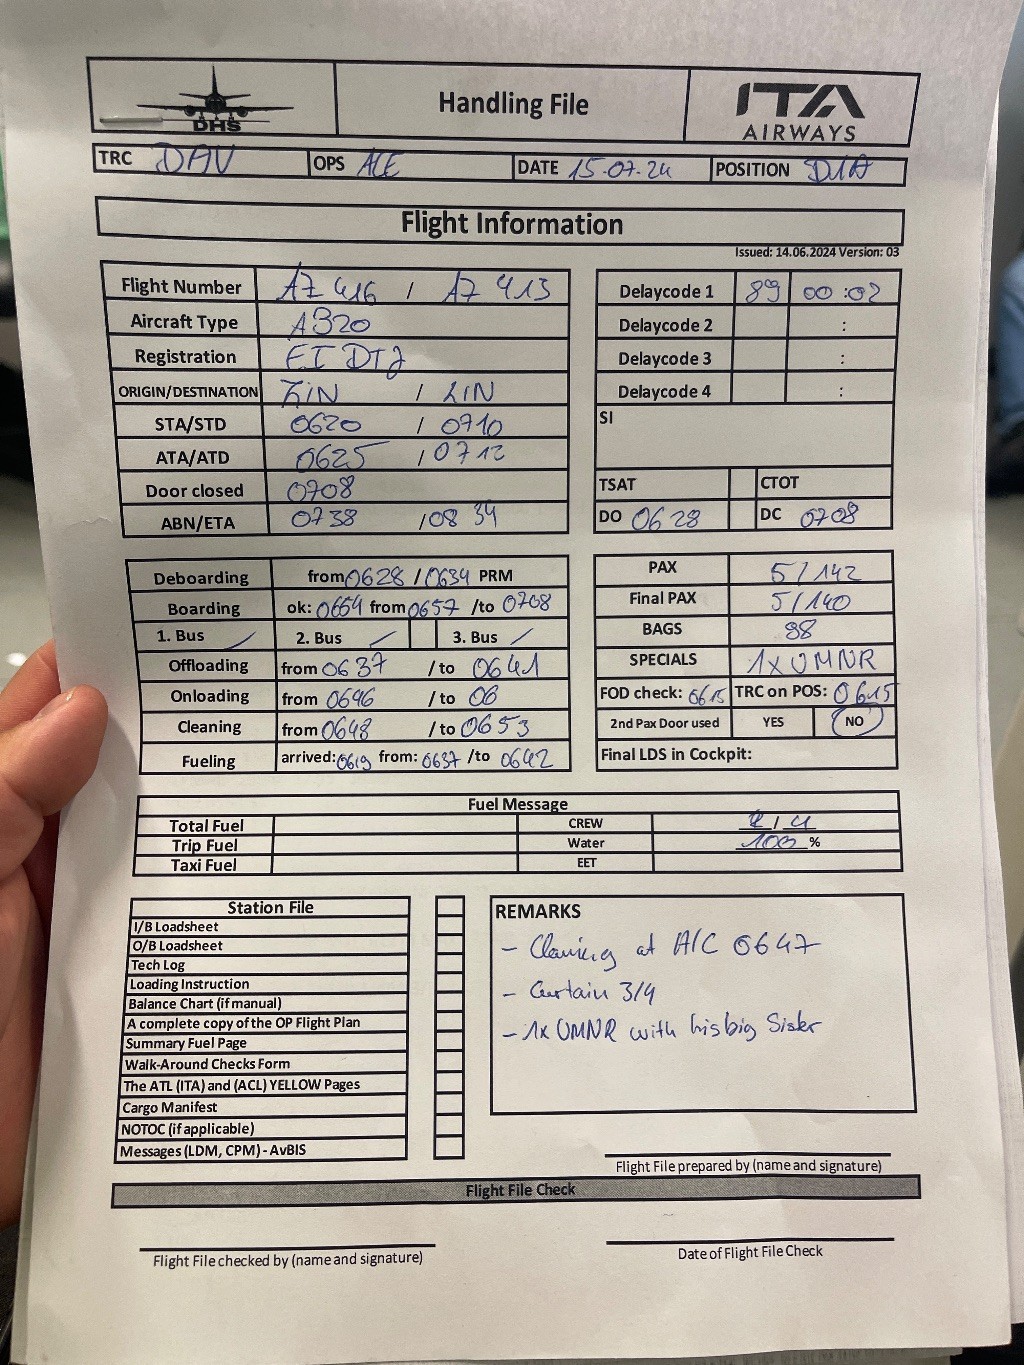 DHS
Handling File
ITA
AIRWAYS
TRC DAV OPS ALE DATE 15.07.24 POSITION D17
Flight Information
Issued: 14.06.2024 Version: 03
Flight Number AZ 416 / AZ 413
Aircraft Type A320
Registration EI DTJ
ORIGIN/DESTINATION LIN / LIN
STA/STD 0620 / 0710
ATA/ATD 0625 / 0712
Door closed 0708
ABN/ETA 0738 / 08 34
Delaycode 1 89 00 : 02
Delaycode 2 :
Delaycode 3 :
Delaycode 4 :
SI
TSAT CTOT
DO 0628 DC 0708
Deboarding from 0628 / 0634 PRM
Boarding ok: 0654 from 0657 /to 0708
1. Bus / 2. Bus / 3. Bus /
Offloading from 0637 /to 0641
Onloading from 0646 /to
Cleaning from 0648 /to 0653
Fueling arrived: 0619 from: 0637 /to 0642
PAX 5/142
Final PAX 5/140
BAGS 98
SPECIALS 1x UMNR
FOD check: 0615 TRC on POS: 0615
2nd Pax Door used YES NO
Final LDS in Cockpit:
Fuel Message
Total Fuel CREW / 4
Trip Fuel Water 100 %
Taxi Fuel EET
Station File
I/B Loadsheet
O/B Loadsheet
Tech Log
Loading Instruction
Balance Chart (if manual)
A complete copy of the OP Flight Plan
Summary Fuel Page
Walk-Around Checks Form
The ATL (ITA) and (ACL) YELLOW Pages
Cargo Manifest
NOTOC (if applicable)
Messages (LDM, CPM) - AvBIS
REMARKS
- Cleaning at A/C 0647
- Curtain 3/4
- 1x UMNR with his big Sister
Flight File prepared by (name and signature)
Flight File Check
Flight File checked by (name and signature)
Date of Flight File Check